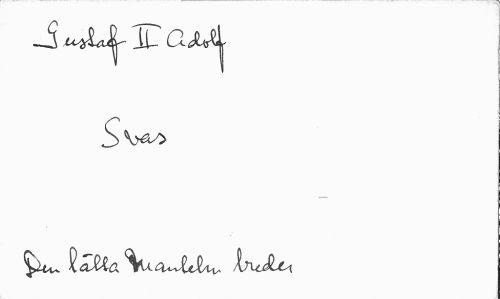 Gustaf II Adolf
Svas
Den lätta Manteln breder